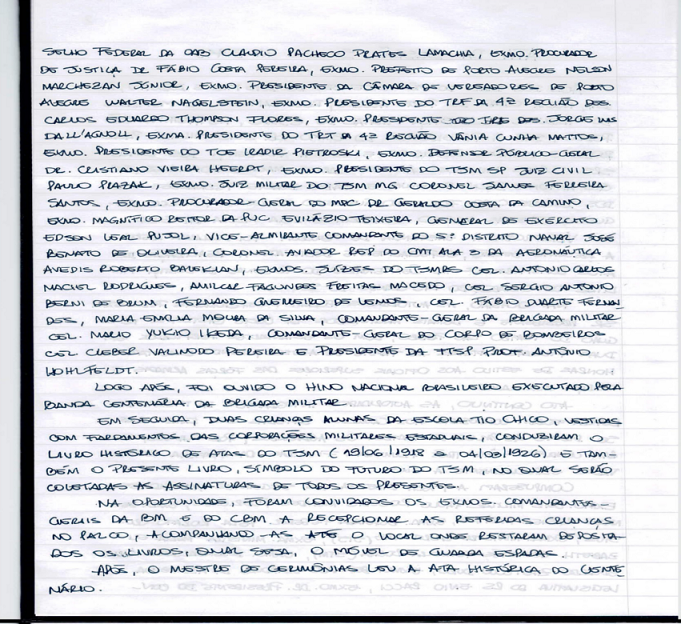 SELHO FEDERAL DA OAB CLAUDIO PACHECO PRATES LAMACHIA, EXMO. PROCURADOR
DE JUSTIÇA DR FÁBIO COSTA PEREIRA, EXMO. PREFEITO DE PORTO ALEGRE NELSON
MARCHEZAN JÚNIOR, EXMO. PRESIDENTE DA CÂMARA DE VEREADORES DE PORTO
ALEGRE WALTER NAGELSTEIN, EXMO. PRESIDENTE DO TRF DA 4ª REGIÃO DES.
CARLOS EDUARDO THOMPSON FLORES, EXMO. PRESIDENTE DO TRE DES. JORGE LUIS
DALL'AGNOLL, EXMA. PRESIDENTE DO TRT DA 4ª REGIÃO VÂNIA CUNHA MATTOS,
EXMO. PRESIDENTE DO TCE IRADIR PIETROSKI, EXMO. DEFENSOR PÚBLICO-GERAL
DR. CRISTIANO VIEIRA HEERDT, EXMO. PRESIDENTE DO TJM SP JUIZ CIVIL
PAULO PRAZAK, EXMO. JUIZ MILITAR DO TJM MG CORONEL JAMES FERREIRA
SANTOS, EXMO. PROCURADOR-GERAL DO MPC DR GERALDO COSTA DA CAMINO,
EXMO. MAGNÍFICO REITOR DA PUC EVILÁZIO TEIXEIRA, GENERAL DE EXÉRCITO
EDSON LEAL PUJOL, VICE-ALMIRANTE COMANDANTE DO 5º DISTRITO NAVAL JOSÉ
RENATO DE OLIVEIRA, CORONEL AVIADOR REP DO CMT ALA 3 DA AERONÁUTICA
AVEDIS ROBERTO BALEKIAN, EXMOS. JUÍZES DO TJMRS CEL. ANTONIO CARLOS
MACIEL RODRIGUES, AMILCAR FAGUNDES FREITAS MACEDO, CEL SERGIO ANTONIO
BERNI DE BRUM, FERNANDO GUERREIRO DE LEMOS, CEL. FÁBIO DUARTE FERNAN-
DES, MARIA EMÍLIA MOURA DA SILVA, COMANDANTE-GERAL DA BRIGADA MILITAR
CEL. MARIO YUKIO IKEDA, COMANDANTE-GERAL DO CORPO DE BOMBEIROS
CEL CLEBER VALINODO PEREIRA E PRESIDENTE DA PROF. ANTÔNIO
HOHLFELDT.
LOGO APÓS, FOI OUVIDO O HINO NACIONAL BRASILEIRO EXECUTADO PELA
BANDA CENTENÁRIA DA BRIGADA MILITAR.
EM SEGUIDA, DUAS CRIANÇAS ALUNAS DA ESCOLA TIO CHICO, VESTIDAS
COM FARDAMENTOS DAS CORPORAÇÕES MILITARES ESTADUAIS, CONDUZIRAM O
LIVRO HISTÓRICO DE ATAS DO TJM (19/06/1918 a 04/03/1926) E TAM-
BÉM O PRESENTE LIVRO, SÍMBOLO DO FUTURO DO TJM, NO QUAL SERÃO
COLETADAS AS ASSINATURAS DE TODOS OS PRESENTES.
NA OPORTUNIDADE, FORAM CONVIDADOS OS EXMOS. COMANDANTES-
GERAIS DA BM E DO CBM A RECEPCIONAR AS REFERIDAS CRIANÇAS
NO PALCO, ACOMPANHANDO-AS ATÉ O LOCAL ONDE RESTARAM DEPOSITA-
DOS OS LIVROS, QUAL SEJA, O MÓVEL DE GUARDA ESPADAS.
APÓS, O MESTRE DE CERIMÔNIAS LEU A ATA HISTÓRICA DO CENTE-
NÁRIO.